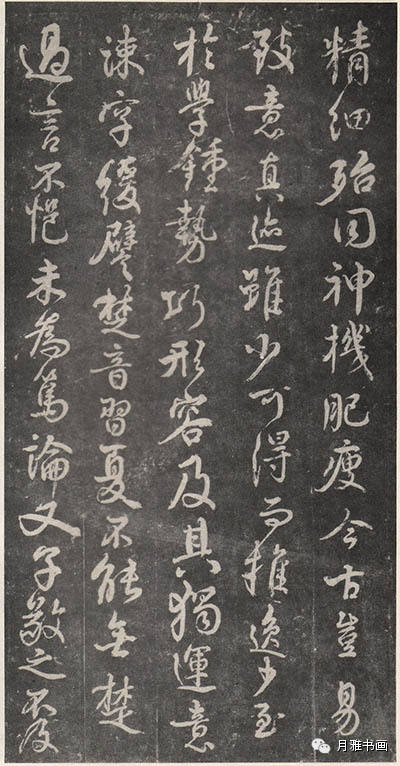 精細殆同神機肥瘦今古豈易
致意真迹雖少可得而推逸少至
於學鍾勢巧形容及其獨運意
疎字緩譬楚音習夏不能無楚
過言不悒未為篤論又子敬之不及
月雅书画